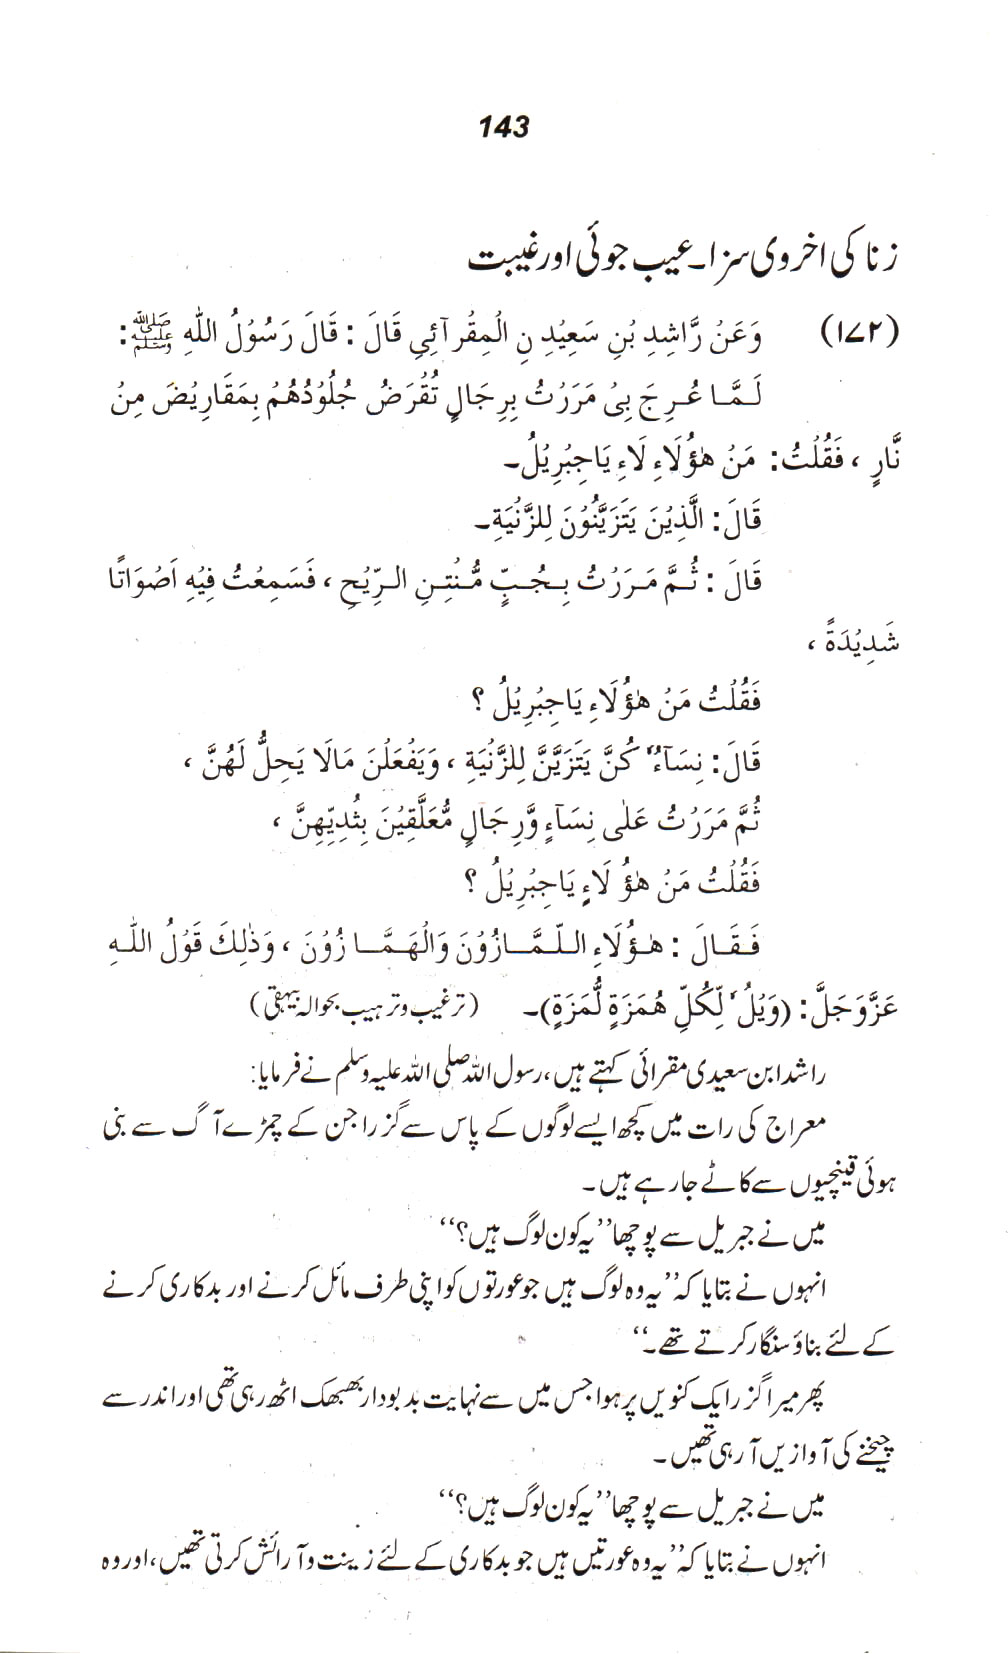 143
زنا کی اخروی سزا۔ عیب جوئی اور غیبت
(۱۷۲) وَعَنْ رَّاشِدِ بْنِ سَعِیْدِ نِ الْمِقْرَآئِیِ قَالَ : قَالَ رَسُوْلُ اللّٰهِ ﷺ :
لَمَّا عُرِجَ بِیْ مَرَرْتُ بِرِجَالٍ تُقْرَضُ جُلُوْدُهُمْ بِمَقَارِیْضَ مِنْ
نَّارٍ ، فَقُلْتُ: مَنْ هٰؤُلَاءِ لَاءِ یَاجِبْرِیْلُ۔
قَالَ: الَّذِیْنَ یَتَزَیَّنُوْنَ لِلزَّنْیَةِ۔
قَالَ : ثُمَّ مَرَرْتُ بِجُبٍّ مُّنْتِنِ الرِّیْحِ ، فَسَمِعْتُ فِیْهِ اَصْوَاتًا
شَدِیْدَةً ،
فَقُلْتُ مَنْ هٰؤُلَاءِ یَاجِبْرِیْلُ ؟
قَالَ: نِسَآءٌ كُنَّ یَتَزَیَّنَّ لِلزَّنْیَةِ ، وَیَفْعَلْنَ مَالَا یَحِلُّ لَهُنَّ ،
ثُمَّ مَرَرْتُ عَلٰی نِسَآءٍ وَّرِجَالٍ مُّعَلَّقِیْنَ بِثُدِیِّهِنَّ ،
فَقُلْتُ مَنْ هٰؤُ لَاءِ یَاجِبْرِیْلُ ؟
فَقَالَ : هٰؤُلَاءِ اللّمَّازُوْنَ وَالْهَمَّازُوْنَ ، وَذٰلِكَ قَوْلُ اللّٰهِ
عَزَّوَجَلَّ: (وَیْلٌ لِّكُلِّ هُمَزَةٍ لُّمَزَةٍ)۔ (ترغیب وترہیب بحوالہ بیہقی)
راشد ابن سعیدی مقرائی کہتے ہیں، رسول اللہ صلی اللہ علیہ وسلم نے فرمایا:
معراج کی رات میں کچھ ایسے لوگوں کے پاس سے گزرا جن کے چمڑے آگ سے بنی
ہوئی قینچیوں سے کاٹے جارہے ہیں۔
میں نے جبریل سے پوچھا ’’یہ کون لوگ ہیں؟‘‘
انہوں نے بتایا کہ ’’یہ وہ لوگ ہیں جو عورتوں کو اپنی طرف مائل کرنے اور بدکاری کرنے
کے لئے بناؤ سنگار کرتے تھے۔‘‘
پھر میرا گزر ایک کنویں پر ہوا جس میں سے نہایت بدبودار بھبھک اٹھ رہی تھی اور اندر سے
چیخنے کی آوازیں آرہی تھیں۔
میں نے جبریل سے پوچھا ’’یہ کون لوگ ہیں؟‘‘
انہوں نے بتایا کہ ’’یہ وہ عورتیں ہیں جو بدکاری کے لئے زینت وآرائش کرتی تھیں، اور وہ